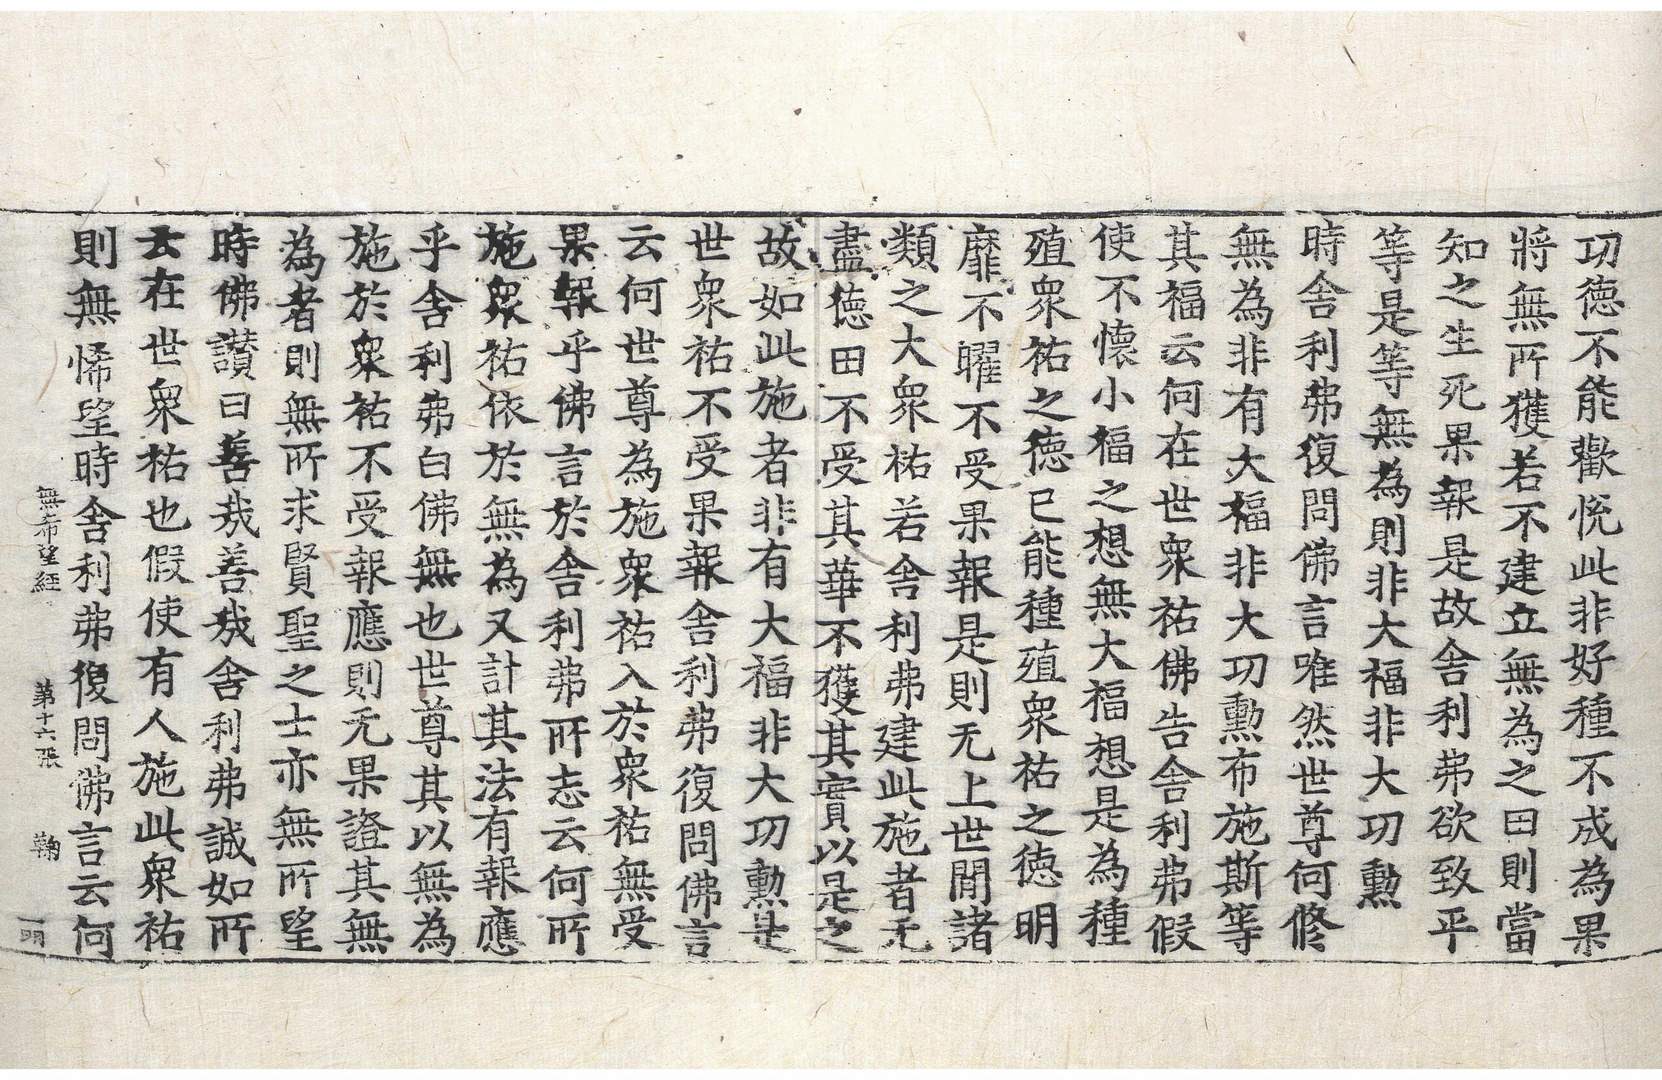 功德不能歡悅此非好種不成為果
將無所獲若不建立無為之田則當
知之生死果報是故舍利弗欲致平
等是等無為則非大福非大功勳
時舍利弗復問佛言唯然世尊何修
無為非有大福非大功勳布施斯等
其福云何在世眾祐佛告舍利弗假
使不懷小福之想無大福想是為種
殖眾祐之德已能種殖眾祐之德明
靡不曜不受果報是則无上世間諸
類之大眾祐若舍利弗建此施者无
盡德田不受其華不獲其實以是之
故如此施者非有大福非大功勳是
世眾祐不受果報舍利弗復問佛言
云何世尊為施眾祐入於眾祐無受
果報乎佛言於舍利弗所志云何所
施眾祐依於無為又計其法有報應
乎舍利弗白佛無也世尊其以無為
施於眾祐不受報應則无果證其無
為者則無所求賢聖之士亦無所望
時佛讃曰善哉善哉舍利弗誠如所
云在世眾祐也假使有人施此眾祐
則無悕望時舍利弗復問佛言云何
無希望經 第十六張 鞠